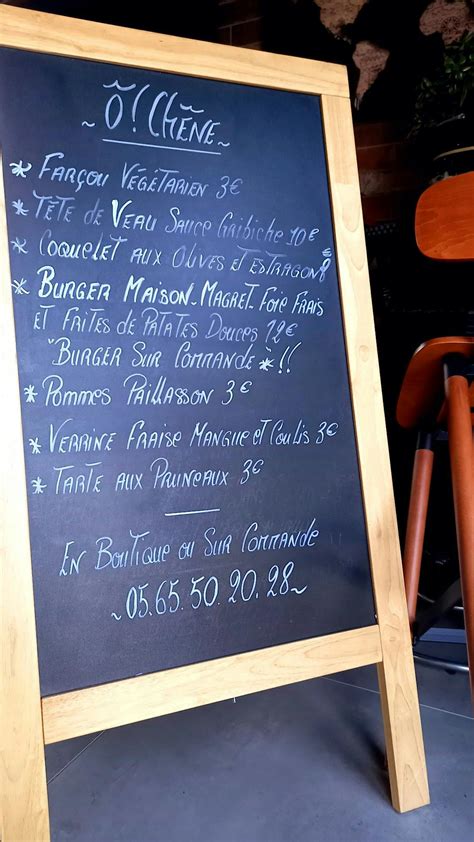 ~ Ô! CHÊNE ~
* FARÇOU VÉGÉTARIEN 3€
* TÊTE DE VEAU SAUCE GRIBICHE 10€
* COQUELET AUX OLIVES ET ESTRAGON 8€
* BURGER MAISON - MAGRET - FOIE FRAIS
ET FRITES DE PATATES DOUCES 12€
"BURGER SUR COMMANDE" * !!
* POMMES PAILLASSON 3€
* VERRINE FRAISE MANGUE ET COULIS 3€
* TARTE AUX PRUNEAUX 3€
EN BOUTIQUE OU SUR COMMANDE
~ 05.65.50.20.28 ~